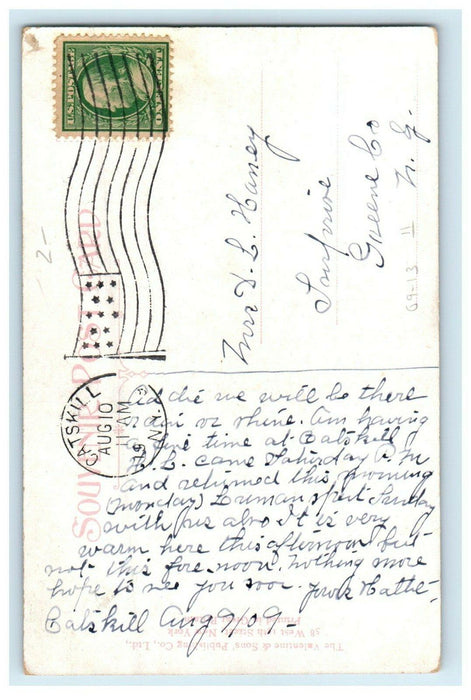 U.S. POSTAGE
CATSKILL
AUG 10
11 AM
N.Y.
SOUVENIR POST CARD
2-
Miss D. L. Haney
Greene Co
N.Y.
69-13 11
Addie we will be there
rain or shine. Am having
a fine time at Catskill
H. L. came Saturday P. M
and returned this morning
(Monday) Luman spent Sunday
with us also It is very
warm here this afternoon but
not this fore noon. Nothing more
hope to see you soon. Yours Hattie-
Catskill Aug 9/09-
The Valentine & Sons' Publishing Co., Ltd.,
West 11th Street, New York
Printed in